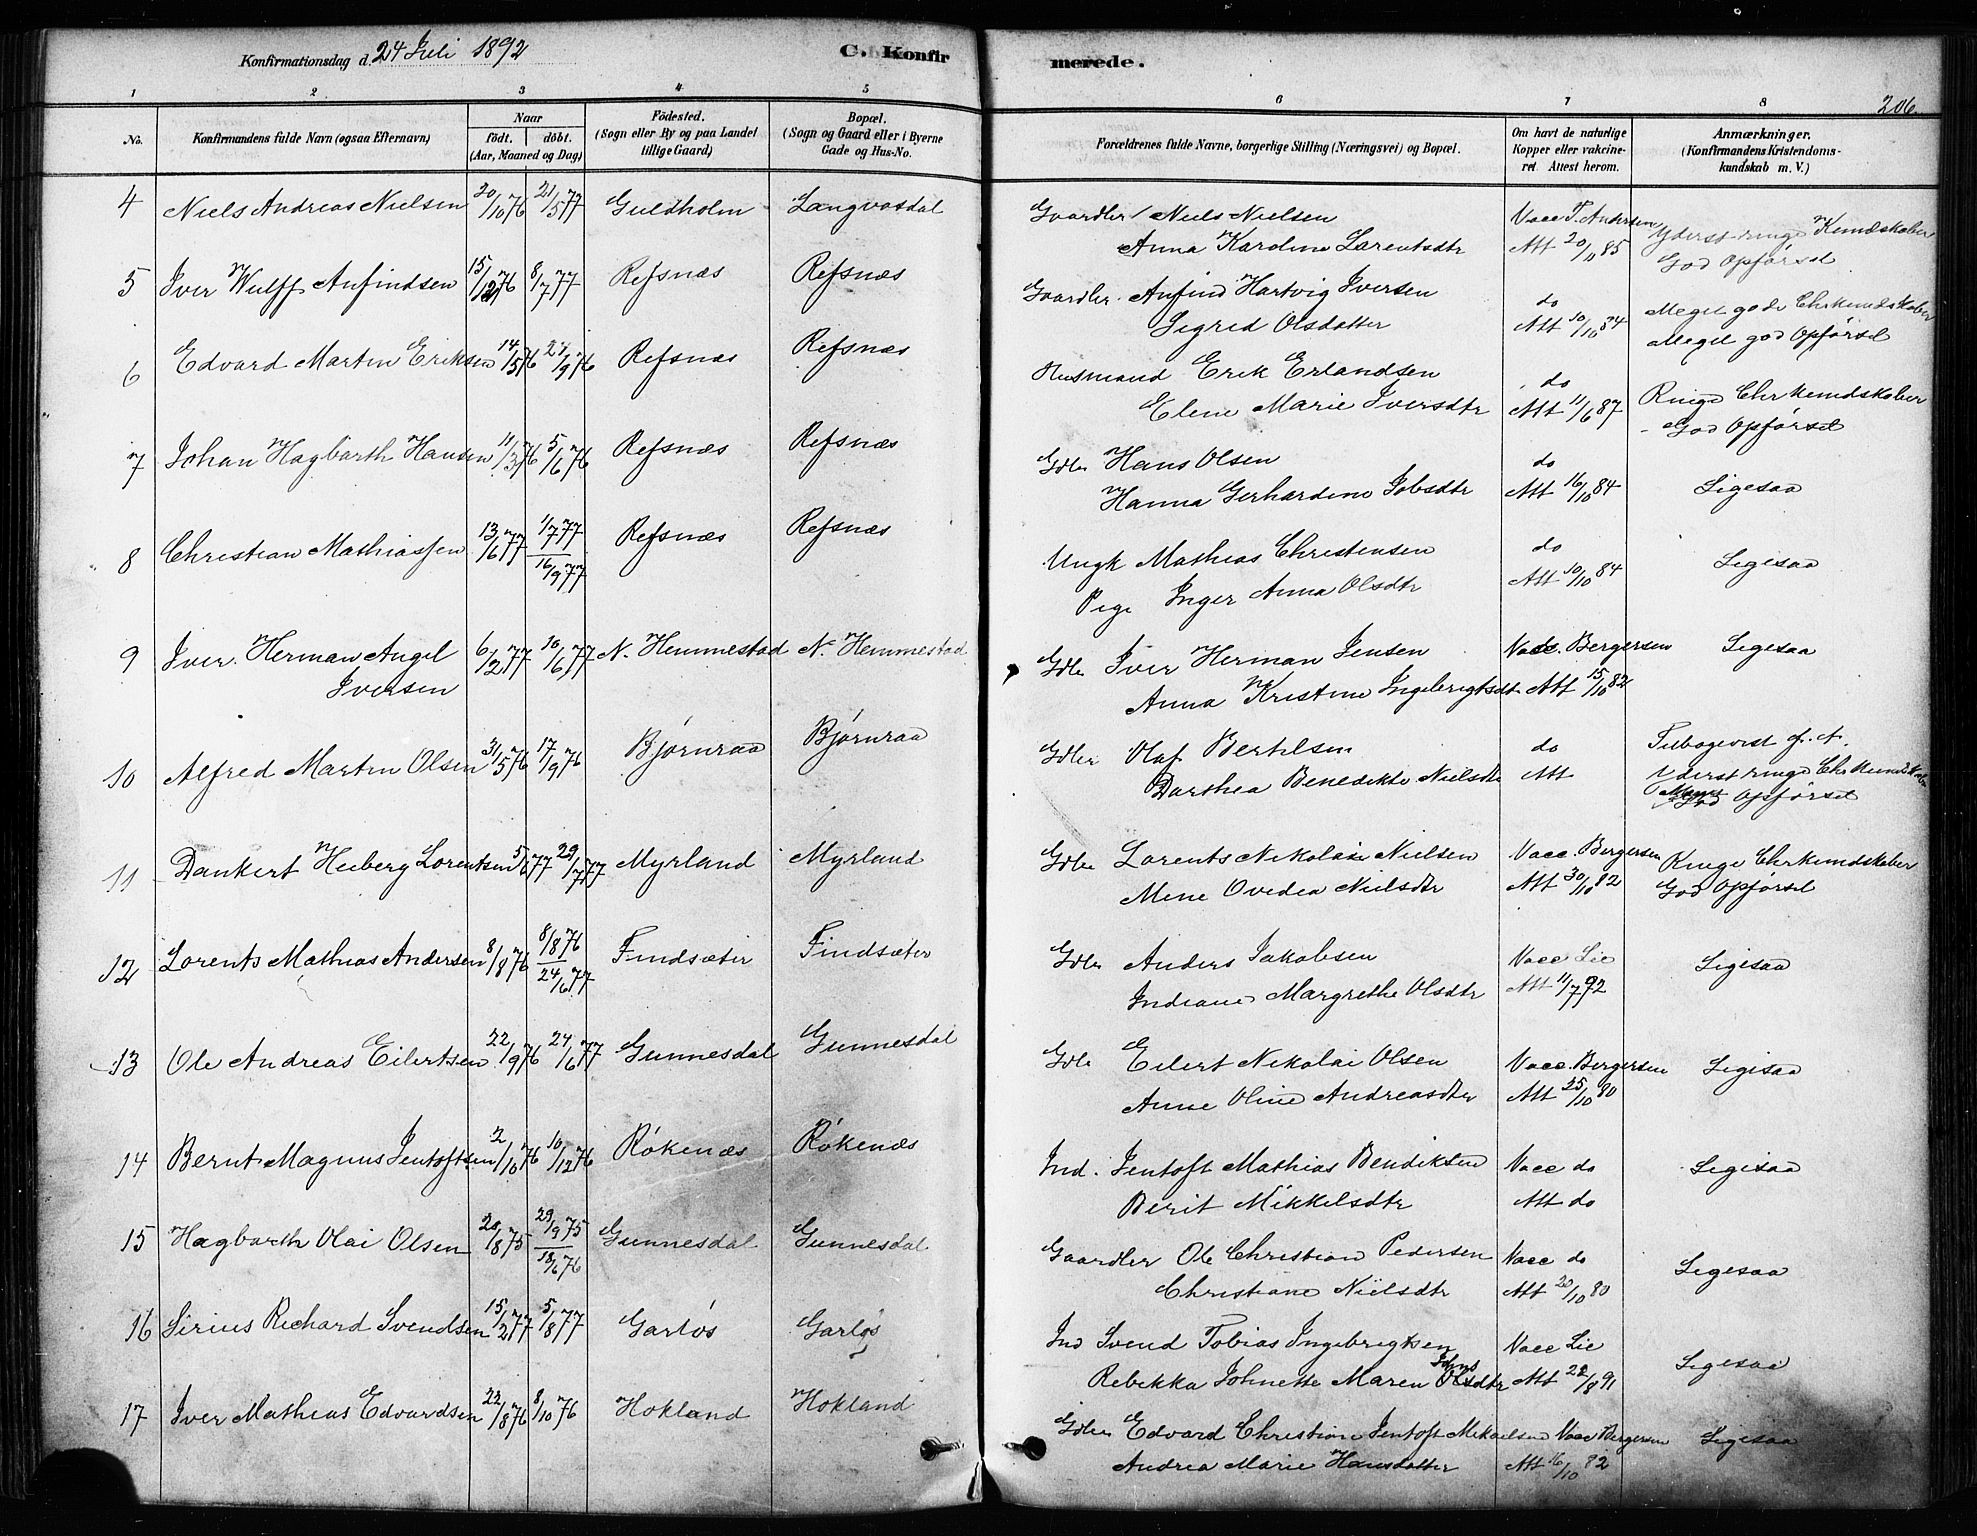 Konfirmationsdag d. 24 Juli 1892 C. Konfirmerede. 206.
1 2 3 4 5 6 7 8
No. Konfirmandens fulde Navn (ogsaa Efternavn) Naar født. døbt. (Aar, Maaned og Dag) Födested. (Sogn eller By og paa Landet tillige Gaard) Bopæl. (Sogn og Gaard eller i Byerne Gade og Hus-No.) Forældrenes fulde Navne, borgerlige Stilling (Næringsvei) og Bopæl. Om havt de naturlige Kopper eller vakcineret Attest herom. Anmærkninger. (Konfirmandens Kristendomskundskab m. V.)
4 Niels Andreas Nielsen 20/10 76 21/5 77 Guldholm Langvasdal Gaardbr Niels Nielsen Vacc T. Andersen Yderst ringe Kundskaber
Anna Karoline Larentsdtr Att 20/11 85 God Opførsel
5 Iver Wulff Anfindsen 15/12 76 8/7 77 Refsnæs Refsnæs Gaardbr. Anfind Hartvig Iversen do Meget gode Chrkundskaber
Sigrid Olsdatter Att 10/10 84 Meget god Opførsel
6 Edvard Martin Eriksen 14/5 76 24/9 76 Refsnæs Refsnæs Husmand Erik Erlandsen do Ringe Chrkundskaber
Elene Marie Iversdtr Att 11/6 87 God Opførsel
7 Johan Hagbarth Hansen 11/3 76 5/6 76 Refsnæs Refsnæs Gdbr Hans Olsen do Ligesaa
Hanna Gerhardine Jobsdtr Att 16/10 84
8 Christian Mathiassen 13/6 77 1/7 77 16/9 77 Refsnæs Refsnæs Ungk Mathias Christensen do Ligesaa
Pige Inger Anna Olsdtr Att 10/10 84
9 Iver Herman Angel 6/2 77 10/6 77 N. Hemmestad N. Hemmestad Gdbr Iver Herman Jensen Vacc. Bergersen Ligesaa
Iversen Anna Kristine Ingebrigtsdt Att 15/10 82
10 Alfred Martin Olsen 31/5 76 17/9 76 Bjørnraa Bjørnraa Gdbr Olaf Bertelsen do Tilbagevist f. A.
Darthea Benedikte Nielsdtr Att Yderst ringe Chrkundskaber
God Opførsel
11 Dankert Heiberg Lorentsen 5/6 77 29/7 77 Myrland Myrland Gdbr Lorents Nikolai Nielsen Vacc. Bergersen Ringe Chrkundskaber
Mine Ovedea Nielsdtr Att 30/10 82 God Opførsel
12 Lorents Mathias Andersen 8/8 76 8/8 76 24/6 77 Findsæter Findsæter Gdbr Anders Jakobsen Vacc Lie Ligesaa
Indiane Margrethe Olsdtr Att 11/7 92
13 Ole Andreas Eilertsen 22/9 76 24/6 77 Gunnesdal Gunnesdal Gdbr Eilert Nikolai Olsen Vacc. Bergersen Ligesaa
Anne Oline Andreasdtr Att 25/10 80
14 Bernt Magnus Jentoftsen 2/10 76 10/12 76 Røkenæs Røkenæs Ind. Jentoft Mathias Bendiksen Vacc do Ligesaa
Berit Mikkelsdtr Att do
15 Hagbarth Olai Olsen 20/8 75 29/9 75 18/6 76 Gunnesdal Gunnesdal Gaardbr Ole Christian Pedersen Vacc do Ligesaa
Christiane Nielsdtr Att 20/10 80
16 Sirius Richard Svendsen 15/2 77 5/8 77 Garløs Garløs Ind Svend Tobias Ingebrigtsen Vacc Lie Ligesaa
Rebekka Johnette Maren Olsdtr Att 22/8 91
17 Iver Mathias Edvardsen 22/8 76 8/10 76 Hokland Hokland Gdbr Edvard Christian Jentoft Mikaelsen Vacc Bergersen Ligesaa
Andrea Marie Hansdatter Att 16/10 82